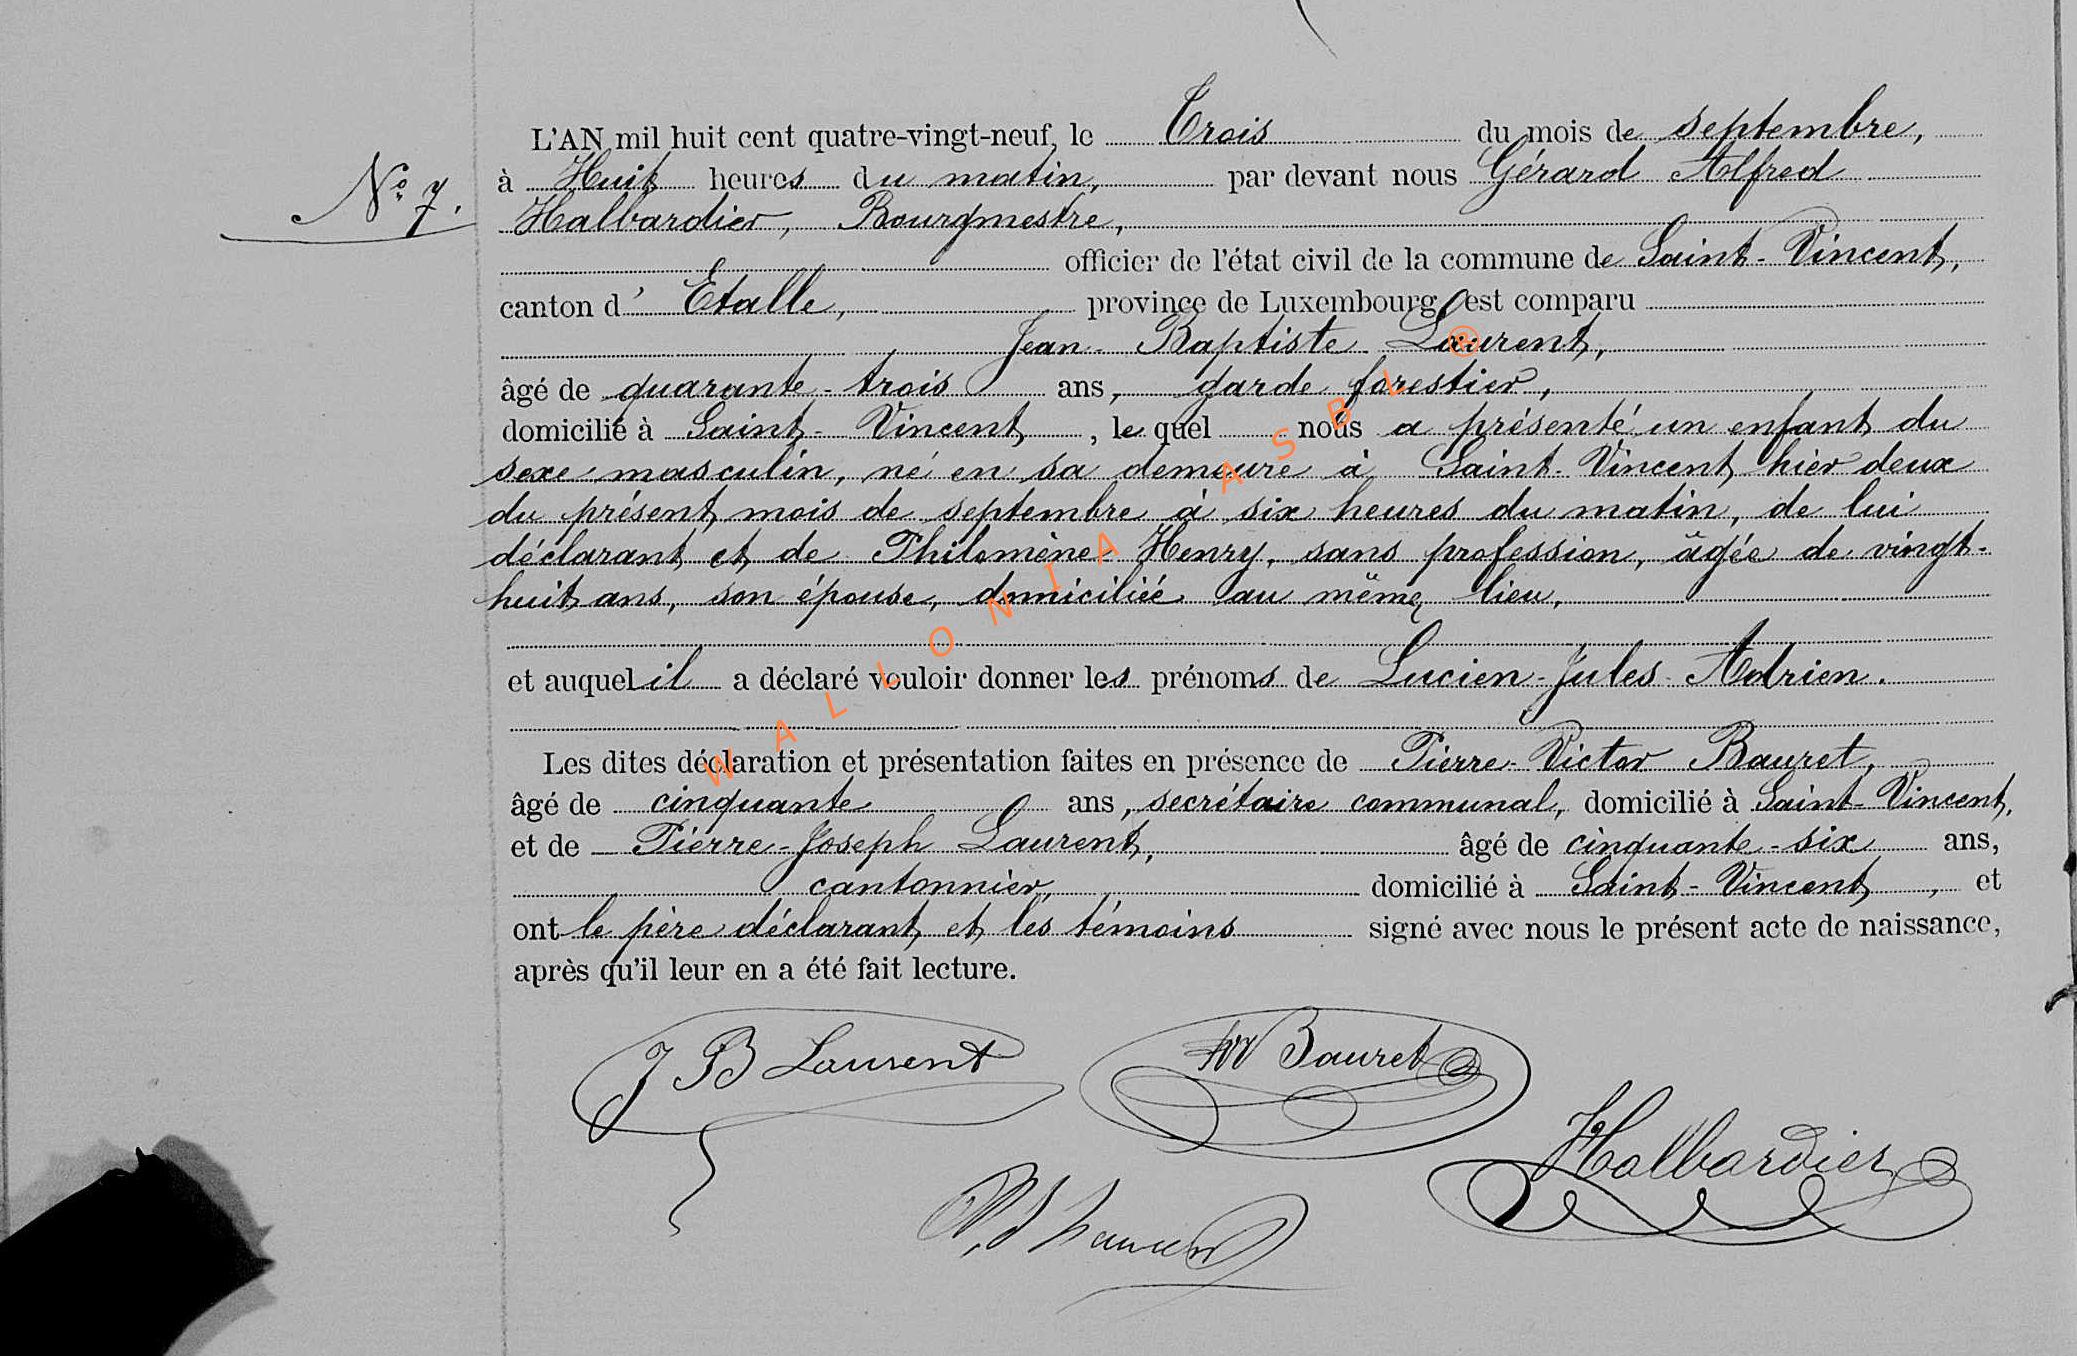 L'AN mil huit cent quatre-vingt-neuf, le Trois du mois de septembre,
N° 7.
à Huit heures du matin, par devant nous Gérard Alfred
Halbardier, Bourgmestre,
officier de l'état civil de la commune de Saint-Vincent,
canton d' Etalle, province de Luxembourg est comparu
Jean-Baptiste Laurent,
âgé de quarante-trois ans, garde forestier,
domicilié à Saint-Vincent, lequel nous a présenté un enfant du
sexe masculin, né en sa demeure à Saint-Vincent hier deux
du présent mois de septembre à six heures du matin, de lui
déclarant et de Philomène Henry, sans profession, âgée de vingt-
huit ans, son épouse, domiciliée au même lieu,
et auquel il a déclaré vouloir donner les prénoms de Lucien-Jules-Adrien.
Les dites déclaration et présentation faites en présence de Pierre-Victor Bauret,
âgé de cinquante ans, secrétaire communal, domicilié à Saint-Vincent,
et de Pierre-Joseph Laurent, âgé de cinquante-six ans,
cantonnier, domicilié à Saint-Vincent, et
ont le père déclarant et les témoins signé avec nous le présent acte de naissance,
après qu'il leur en a été fait lecture.
J B Laurent
Bauret
Halbardier
WALLONIA ASBL ®